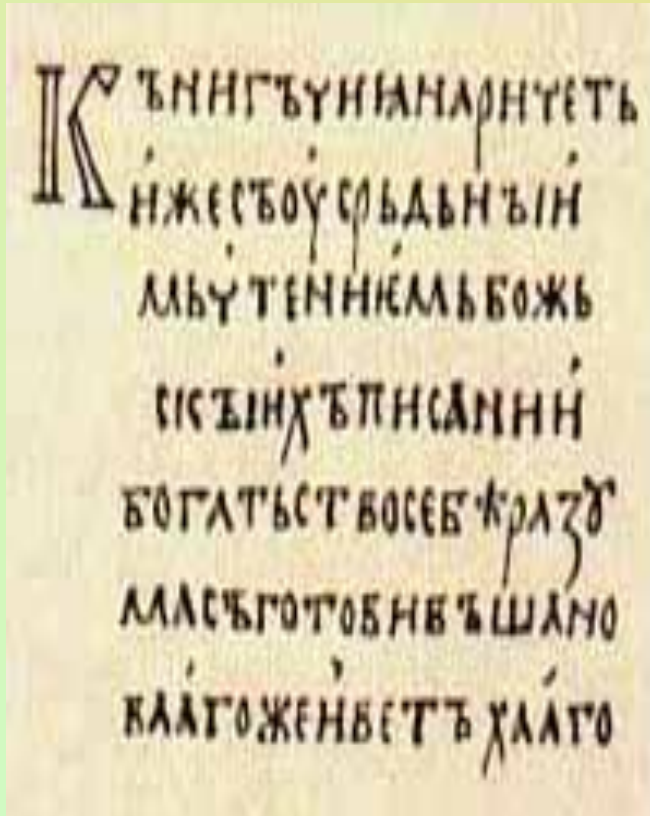 КЪНИГЪЧИꙖНАРИЧЕТЬ
ИЖЕСЪОУСРЬДЬНЪІИ
МЬЧТЕНИѤМЬБОЖЬ
СТВЪІИХЪПИСАНИИ
БОГАТЬСТВОСЕБѢРАЗꙊ
МАСЪГОТОВИВЪШАНО
ВААГОЖЕИВЕТЪХААГО